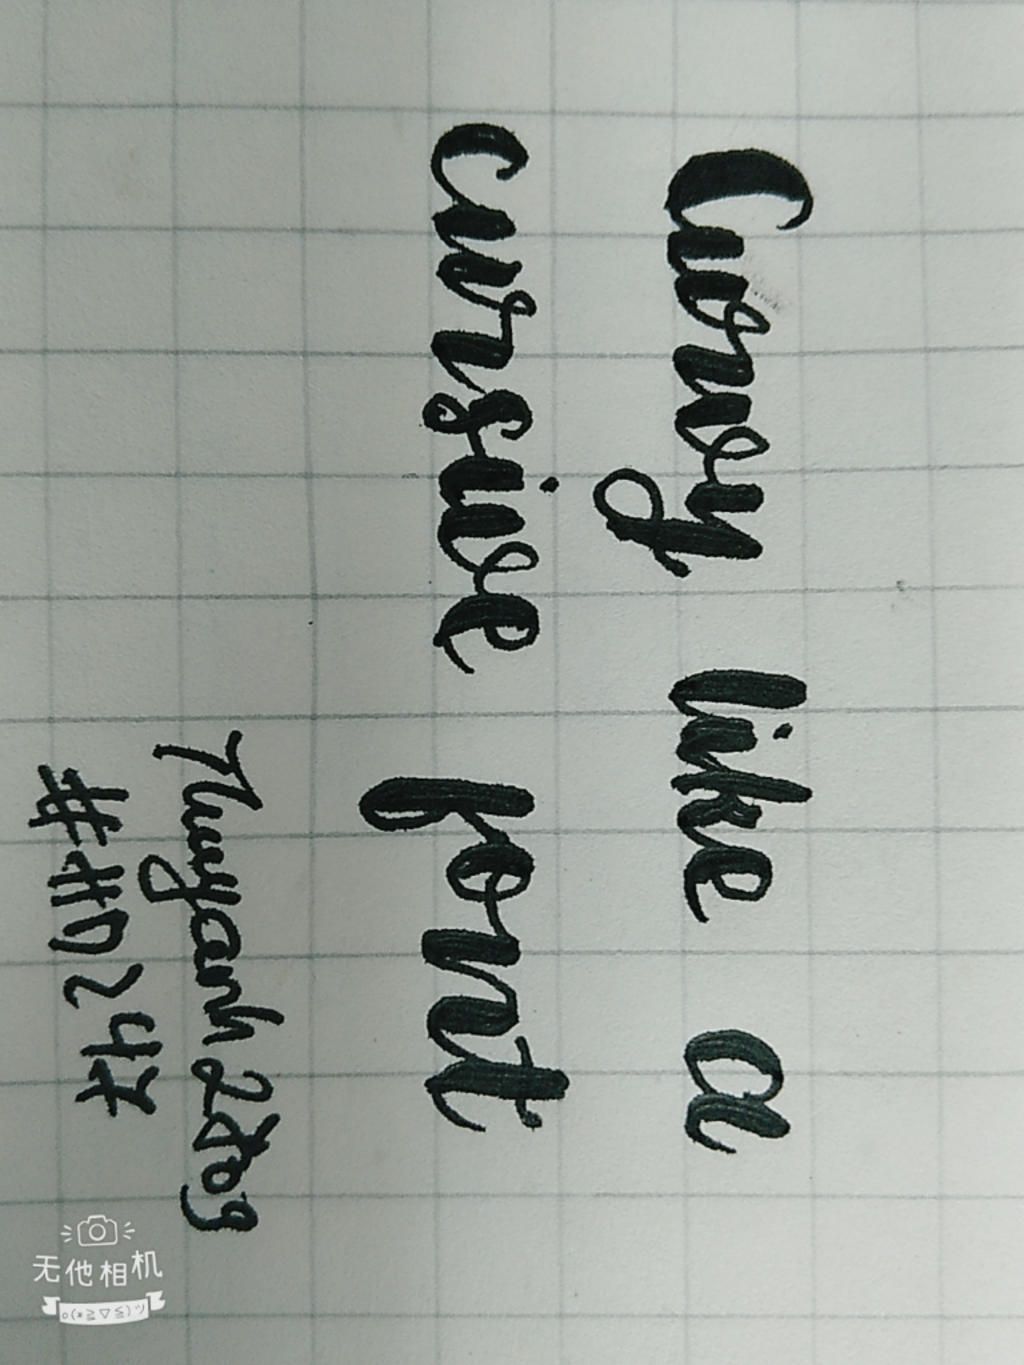 Curvy like a
cursive font
Tuyanh2809
#HD247
无他相机
o(*≧▽≦)ツ